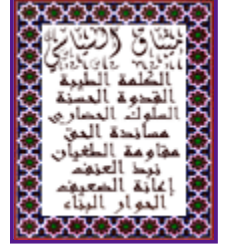 ميثاق البنائي
الكلمة الطيبة
القدوة الحسنة
السلوك الحضاري
مساندة الحق
مقاومة الطغيان
نبذ العنف
إعانة الضعيف
الحوار البناء